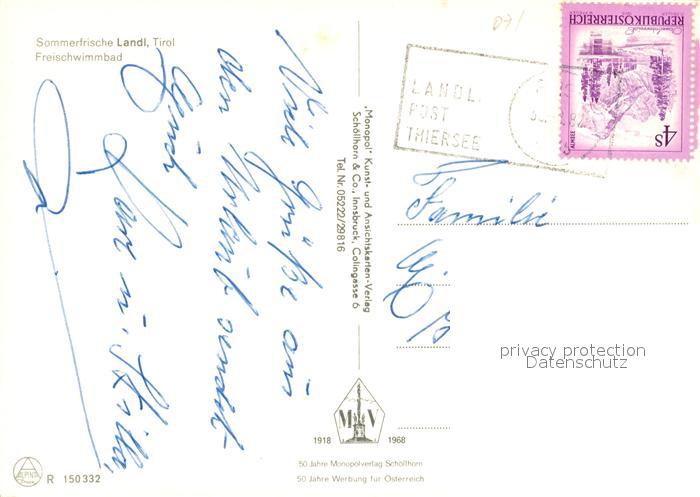 Sommerfrische Landl, Tirol
Freischwimmbad
Viele Grüße aus
dem Urlaub sendet
Euch
„Monopol" Kunst- und Ansichtskarten-Verlag
Schöllhorn & Co., Innsbruck, Colingasse 6
Tel. Nr. 05222/29816
REPUBLIK ÖSTERREICH
ALMSEE
4S
LANDL.
POST
THIERSEE
Familie
privacy protection
Datenschutz
M V
1918 1968
50 Jahre Monopolverlag Schöllhorn
50 Jahre Werbung für Österreich
ALPINA
R 150332